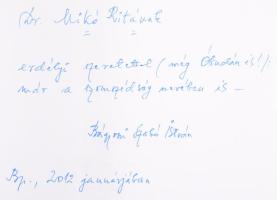 Dr. Mikó Ritának
erdélyi szeretettel (még Óbudán is!),
már a szomszédság nevében is –
Bágyoni Szabó István
Bp., 2012 januárjában